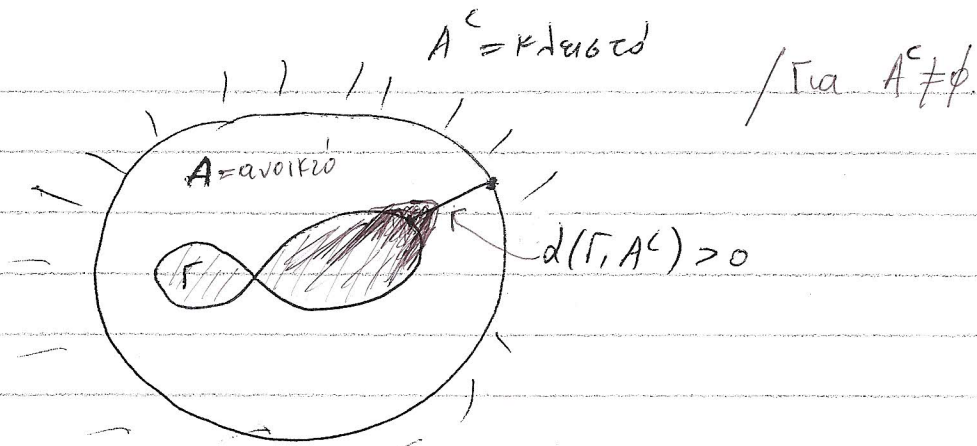 Aᶜ = κλειστό
/ Για Aᶜ ≠ φ.
A = ανοικτό
Γ
Γ
d(Γ, Aᶜ) > 0